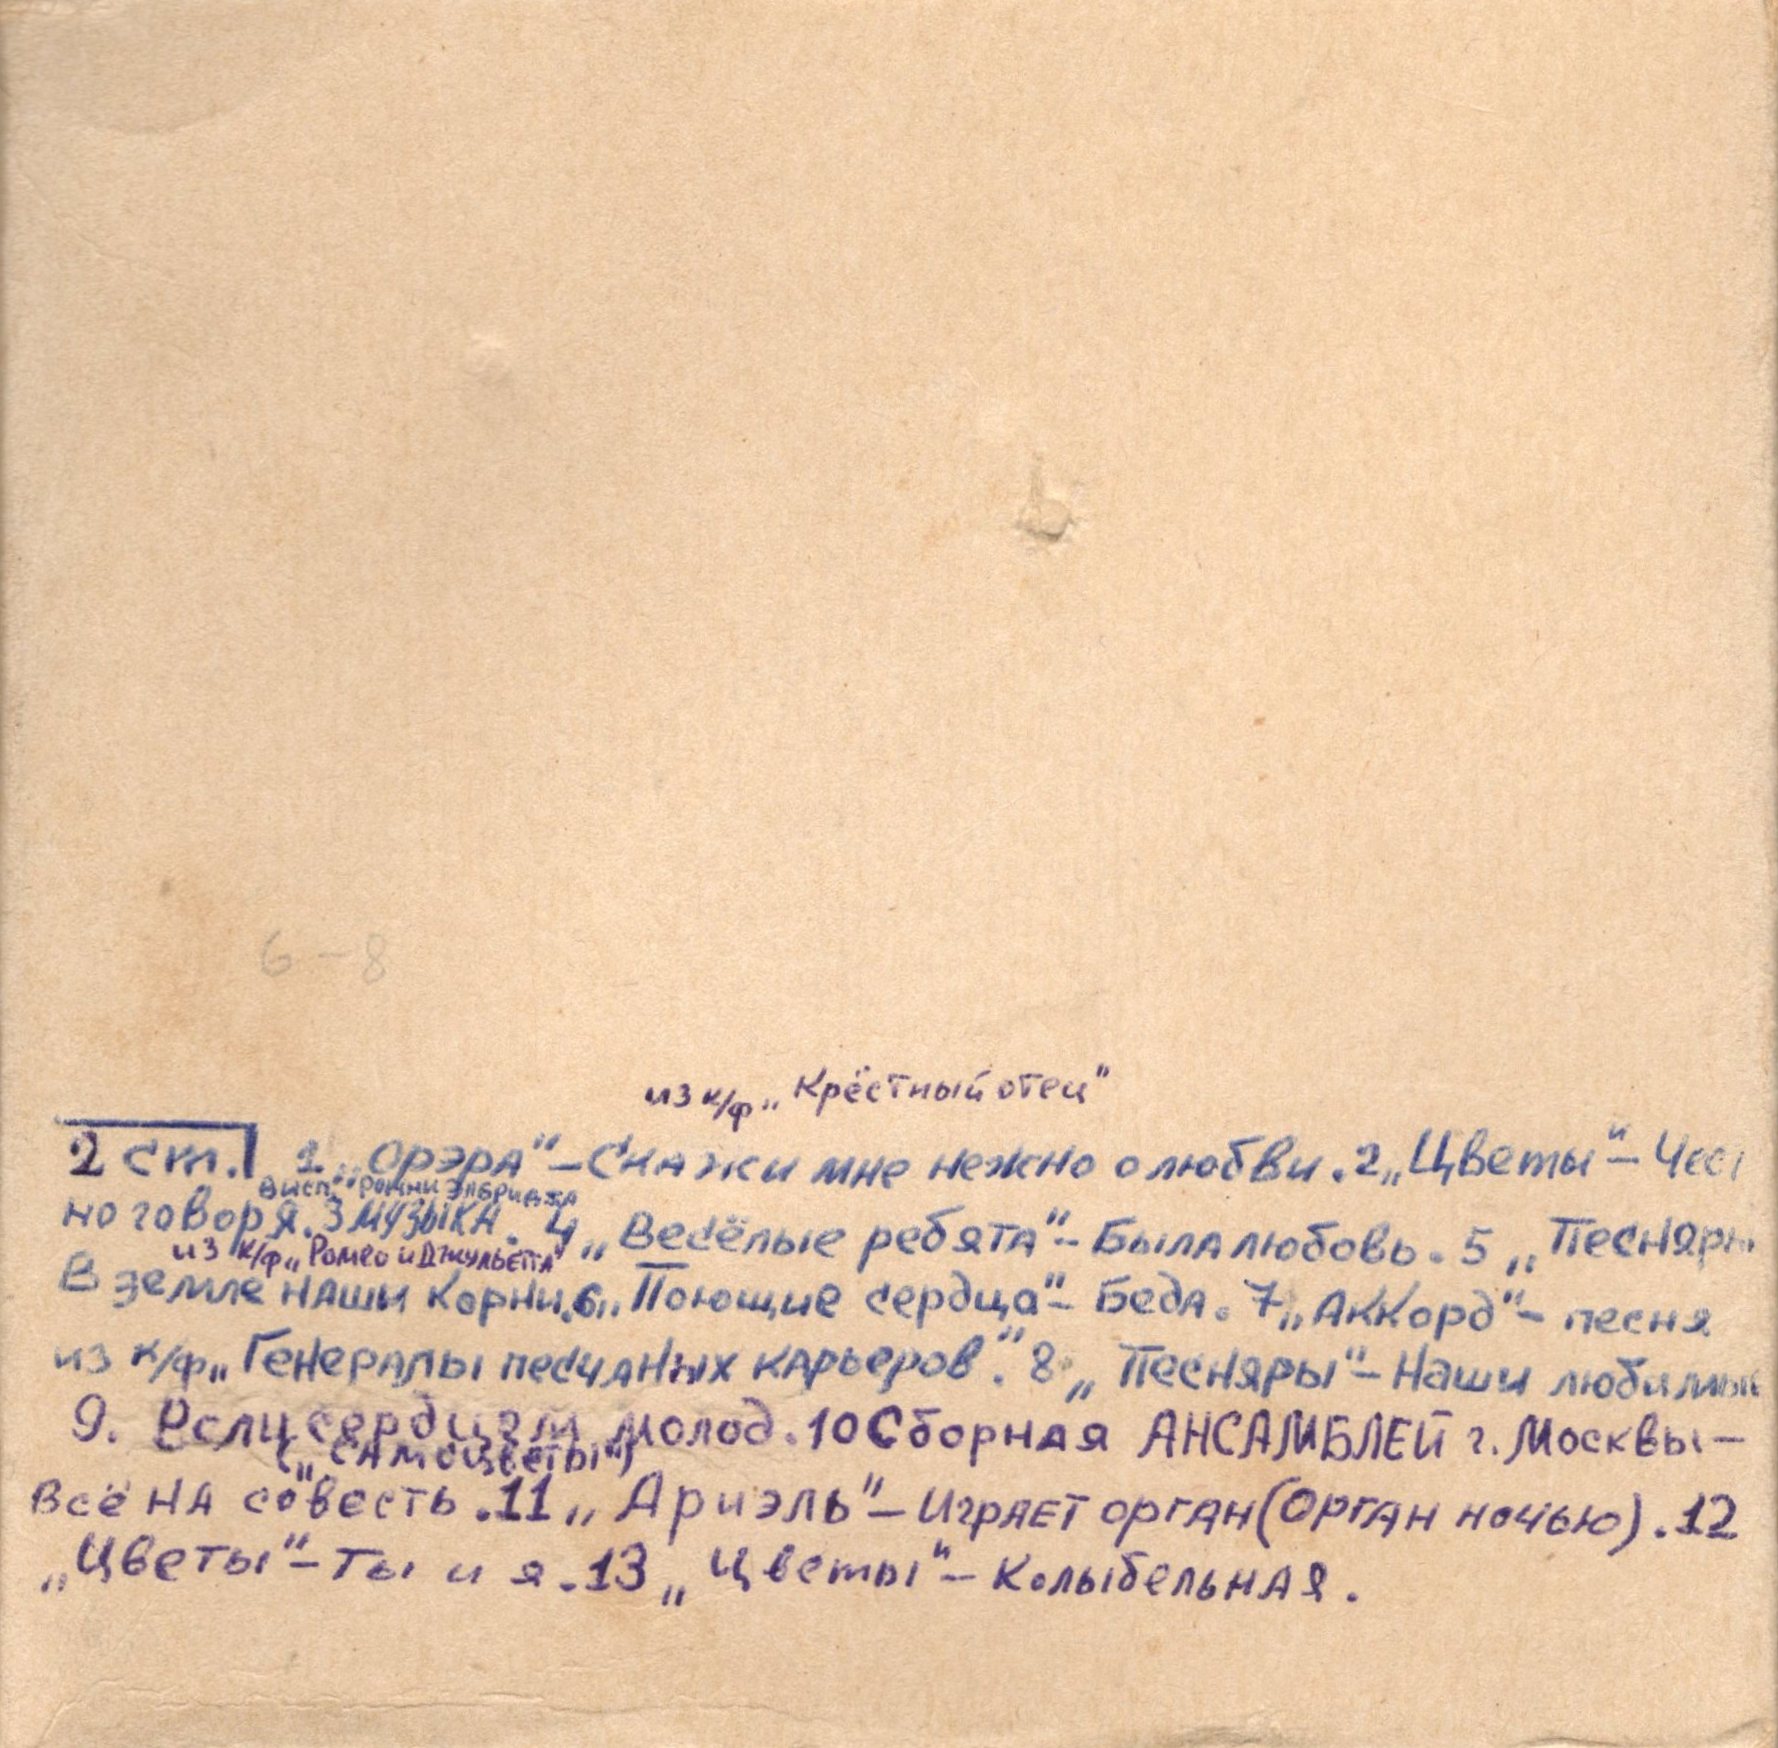 6 - 8
из к/ф „Крёстный отец"
2 ст. 1 „Орэра" - Скажи мне нежно о любви. 2 „Цветы" - Чест
в исп.
но говоря. 3 Музыка. 4 „Весёлые ребята" - Была любовь. 5 „Песняры
из к/ф „Ромео и Джульетта"
В земле наши корни. 6 „Поющие сердца" - Беда. 7 „Аккорд" - песня
из к/ф „Генералы песчаных карьеров". 8 „Песняры" - Наши любимые
9. Если сердцем молод. 10 Сборная АНСАМБЛЕЙ г. Москвы -
(„Самоцветы")
Всё на совесть. 11 „Ариэль" - Играет орган (Орган ночью). 12
„Цветы" - Ты и я. 13 „Цветы" - Колыбельная.